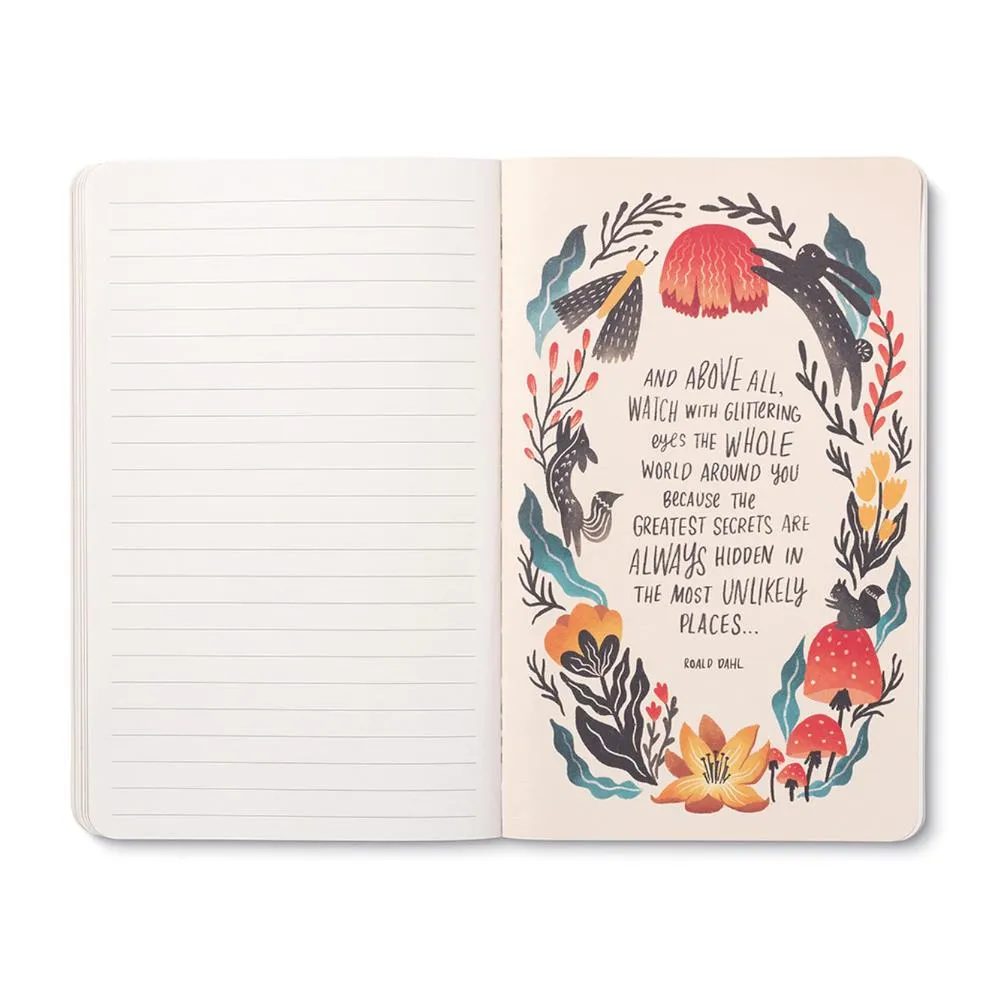 AND ABOVE ALL,
WATCH WITH GLITTERING
eyes THE WHOLE
WORLD AROUND YOU
BECAUSE THE
GREATEST SECRETS ARE
ALWAYS HIDDEN IN
THE MOST UNLIKELY
PLACES...
ROALD DAHL